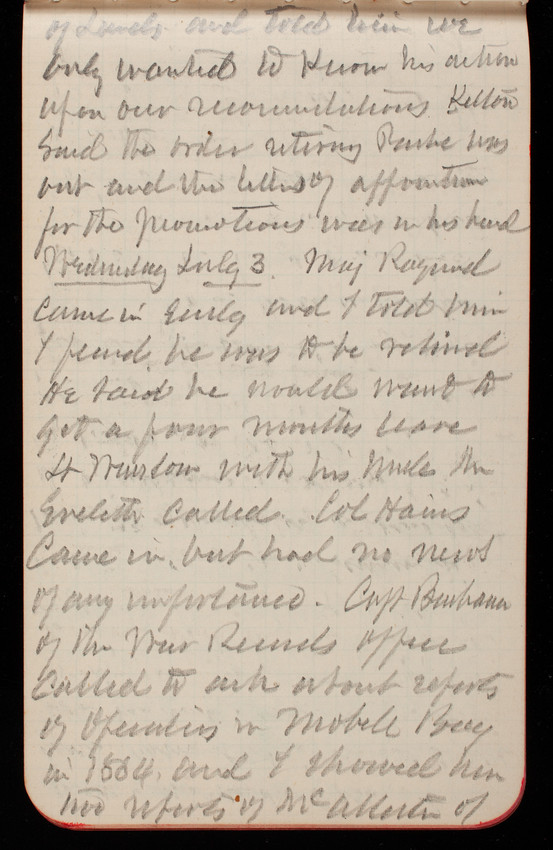 of Lands and told him we
only wanted to know his action
upon our recommendations Kelton
said the order retiring Parke was
out and the letters of
for the promotions was in his hand
Wednesday July 3. Maj Raymond
came in early and I told him
I he was to be retired
He said he would want to
get a four months leave
Lt Winslow with his Uncle Mr
Eveleth called. Col Hains
Came in, but had no news
of any importance. Capt
of the War Records office
Called to ask about reports
of Operations in Mobile Bay
in 1864. and I showed him
two reports of McAllester of